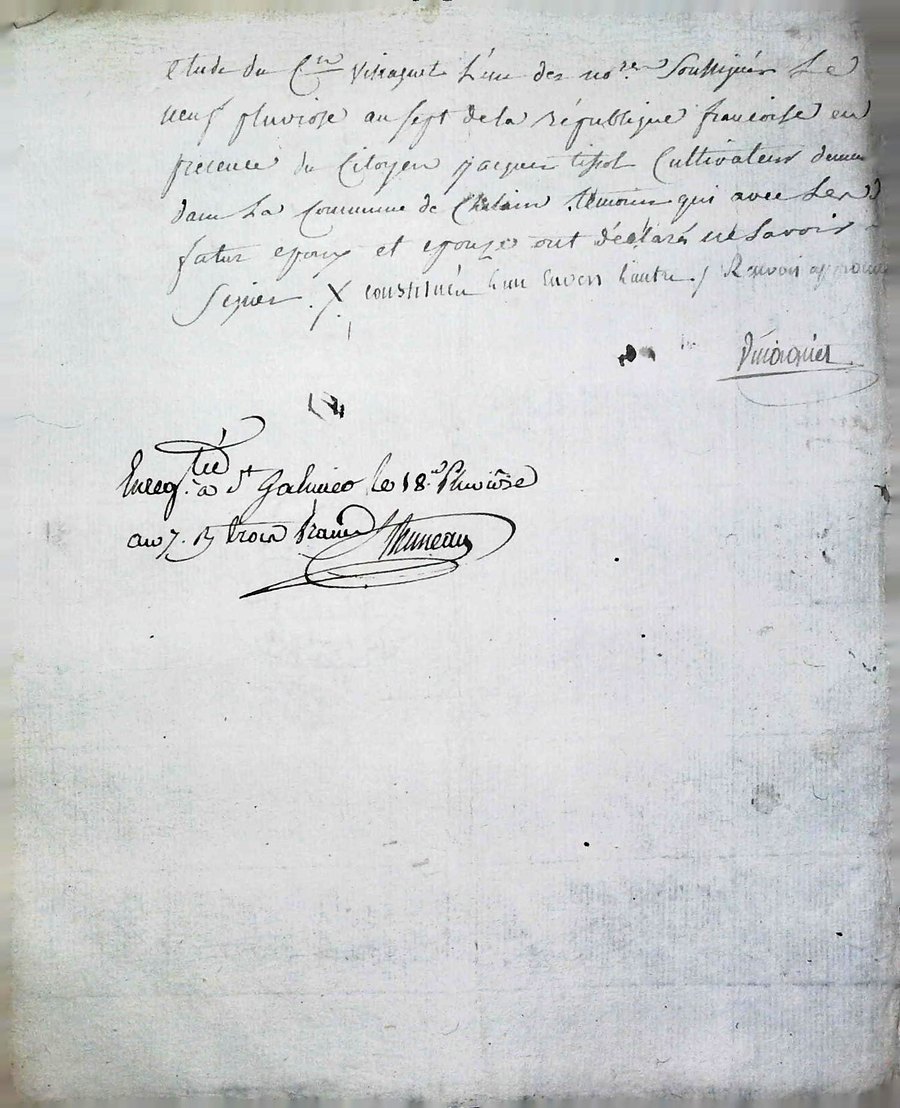 etude du C.en l'un des no.res Soussignés Le
neuf pluviose an sept de la république francoise en
presence du Citoyen jacques tissot Cultivateur demeu
dans La Commune de temoin qui avec Les d
futur epoux et epouze ont déclarés ne Savoir
Signer . X constitués l'un envers l'autre / Renvoi approuvé
Enreg.tré a S.t Galmier le 18. Pluviôse
an 7. R trois francs